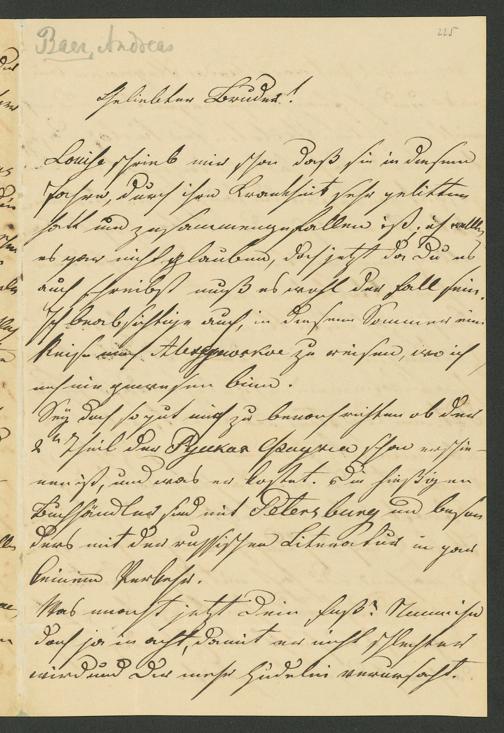 Baer, Andreas
225
Geliebter Bruder!
Louise schrieb mir schon daß sie in diesem
Jahre, durch ihre Krankheit sehr gelitten
hat und zusammengefallen ist. ich wollte
es gar nicht glauben, doch jetzt da Du es
auch schreibst muß es wohl der Fall sein.
Ich beabsichtige auch, in diesem Sommer eine
Reise nach zu reisen, wo ich
nie gewesen binn.
Sey doch so gut mich zu benachrichten ob der
2te Theil der Русская Фауна schon erschie-
nen ist, und was er kostet. Die hiesigen
Buchhändler sind mit Petersburg und beson
ders mit der russischen Literatur in gar
keinem Verkehr.
Was macht jetzt Dein Fuß? Nimm ihn
doch ja in acht, damit er nicht schlechter
wird und Dir mehr Hudelei verursacht.